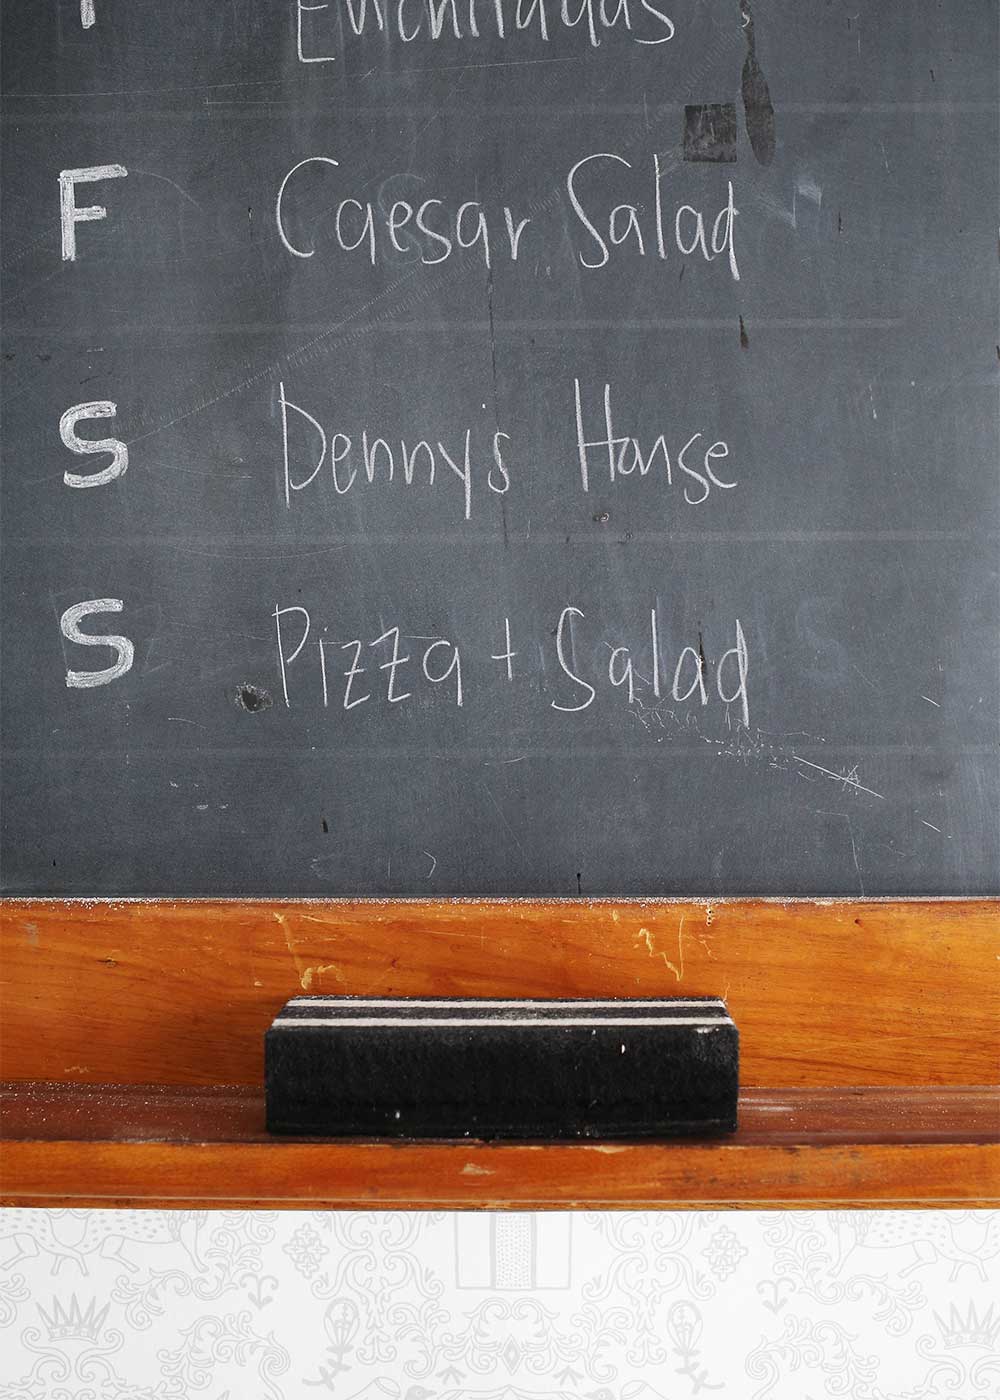 T Enchiladas
F Caesar Salad
S Denny's House
S Pizza + Salad